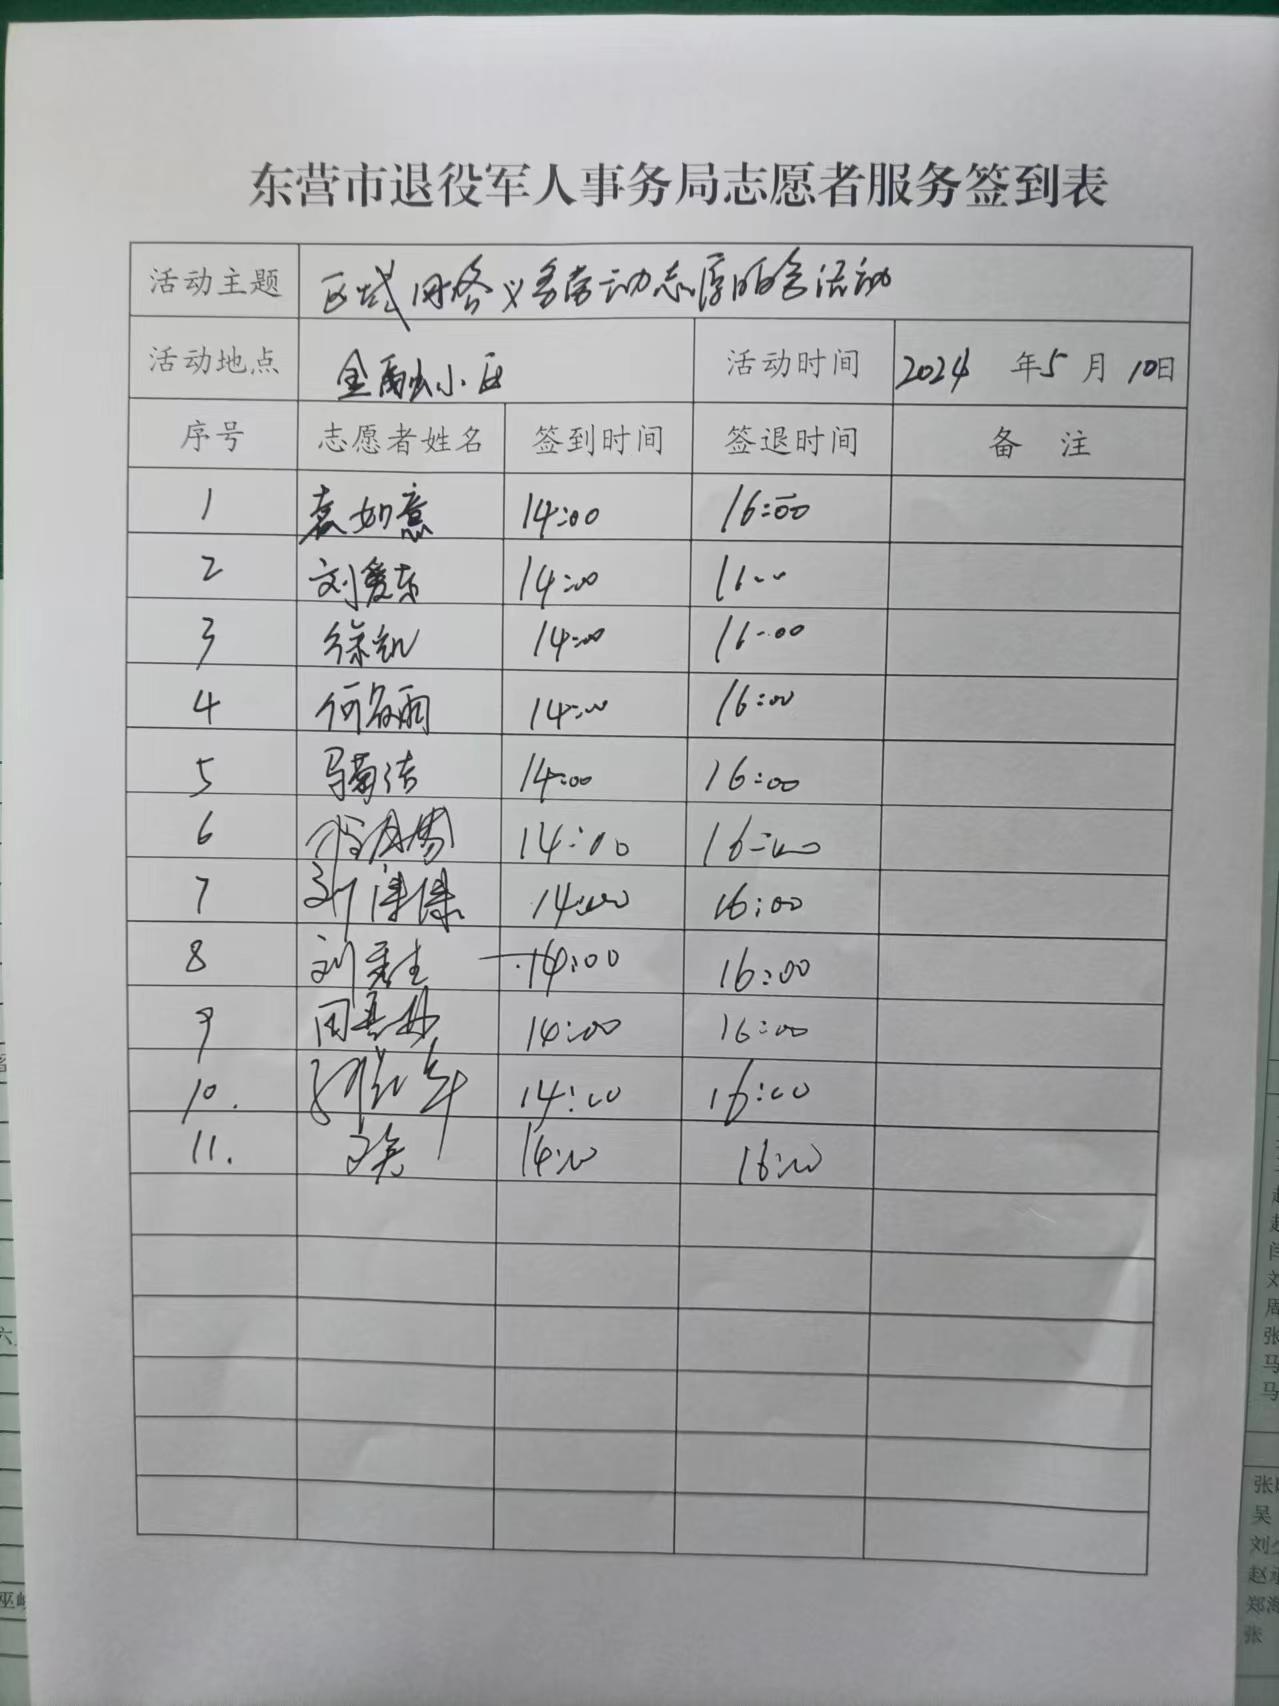 东营市退役军人事务局志愿者服务签到表
活动主题 区域网格义务劳动志愿服务活动
活动地点 金融小区 活动时间 2024 年 5 月 10 日
序号 志愿者姓名 签到时间 签退时间 备 注
1 袁如意 14:00 16:00
2 刘爱东 14:00 16:00
3 徐凯 14:00 16:00
4 何 雨 14:00 16:00
5 马菊洁 14:00 16:00
6 14:00 16:00
7 刘 14:00 16:00
8 刘 生 14:00 16:00
9 14:00 16:00
10. 14:00 16:00
11. 14:00 16:00
六
巫峰
刘
周
张
马
马
张
吴
刘
赵
郑海
张